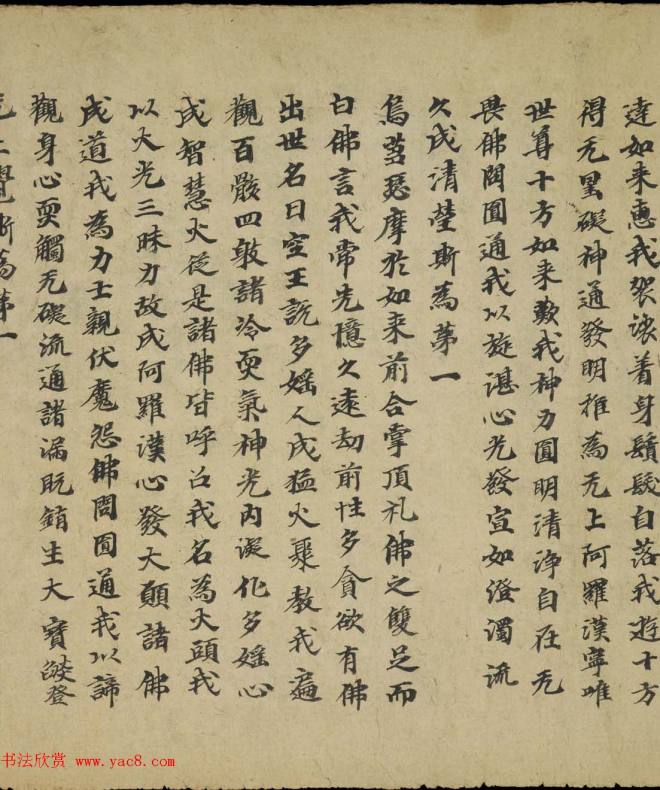 達如来惠我袈裟着身鬚髮自落我遊十方
得无罣礙神通發明推為无上阿羅漢寧唯
世尊十方如来歎我神力圓明清淨自在无
畏佛問圓通我以旋湛心光發宣如澄濁流
久成清瑩斯為苐一
烏蒭瑟摩於如来前合掌頂礼佛之雙足而
白佛言我常先憶久遠劫前性多貪欲有佛
出世名曰空王說多婬人成猛火聚教我遍
觀百骸四敊諸冷耎氣神光内凝化多婬心
成智慧火從是諸佛皆呼召我名為火頭我
以火光三昧力故成阿羅漢心發大願諸佛
成道我為力士親伏魔怨佛問圓通我以諦
觀身心耎觸无礙流通諸漏既銷生大寶𦦨登
无上覺斯為苐一
书法欣赏 www.yac8.com